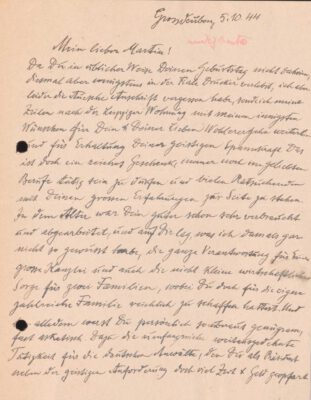 Grossdeuben, 5.10.44
Mein lieber Martin!
Da Du in üblicher Weise Deinen Geburtstag nicht daheim,
diesmal aber wenigstens in der Nähe verlebst, ich aber
leider die Anschrift vergessen habe, sende ich meine
Zeilen nach der Leipziger Wohnung mit meinen innigsten
Wünschen für Dein & Deiner Lieben Wohlergehn weiterhin
und für Erhaltung Deiner geistigen Spannkraft. Das
ist doch ein reiches Geschenk, immer noch im geliebten
Berufe tätig sein zu dürfen und vielen Ratsuchenden
mit Deinen grossen Erfahrungen zur Seite zu stehen.
In dem Alter war Dein guter schon sehr verbraucht
und abgearbeitet, und auf Dir lag, was ich damals gar
nicht so gewusst habe, die ganze Verantwortung für die
grosse Kanzlei und auch die nicht kleine wirtschaftliche
Sorge für zwei Familien, wobei Du doch für die eigene
zahlreiche Familie reichlich zu schaffen hattest. Und
alledem warst Du persönlich genügsam,
fast asketisch. Dazu die umfangreiche
Tätigkeit für die deutschen Anwälte, den Du als Präsident
neben der geistigen Anforderung doch viel Zeit & Geld geopfert